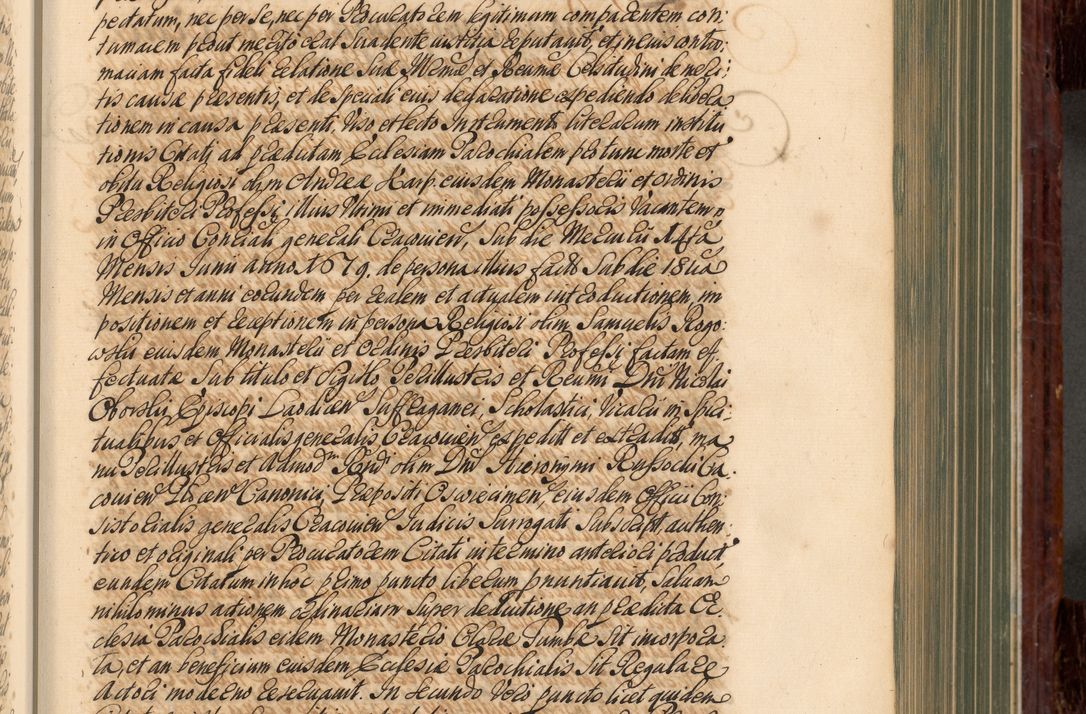 pectatum, nec per se, nec per Procuratorem legitimum comparentem con
tumacem prout merito erat suadente iustitia reputavit, et, in eius contu:
maciam facta fideli relatione Suæ Illmæ et Reumæ Celsitudini de meri:
tis causæ præsentis, et de speciali eius declaratione expediendo delibera
tionem in causa præsenti, Viso et lecto Instrumento literarum institu
tionis Citati ad prædictam Ecclesiam Parochialem pro tunc morte et
obitu Religiosi olim Andreæ Karp eiusdem Monasterii et ordinis
Presbiteri Professi, illius Ultimi et immediati possessoris Vacantem
in Officio Consiali generali Cracovien, Sub die Mercurii 14ta
Mensis Junii anno 1679. de persona illius facto Sub die 18tia
Mensis et anni eorundem per realem et actualem introductionem, im
positionem et receptionem in persona Religiosi olim Samuelis Rogo:
wski eiusdem Monasterii et Ordinis Presbiteri Professi factam ef
fectuata Sub titulo et Sigillo Perillustris et Reumi Dni Nicolai
Oborski, Episcopi Laodicen Suffraganei, Scholastici, Vicarii in Spiri:
tualibus et Officialis generalis Cracovien expedito et extradito, ma
nu Perillustris et Admodm Rndi olim Dni Hieronymi Russocki Cra:
covien Plocen Canonici, Præpositi Oswiecimen, eiusdem Officii Con
sistorialis generalis Cracovien Iudicis Surrogati Subscripto authen:
tico et originali, per Procuratorem Citati in termino anteriori producto
eundem Citatum in hoc primo puncto liberum pnuntiavit, Salvam
nihilominus actionem ordinariam super deductione an prædicta Ec
clesia Parochialis eidem Monasterio Claræ Tumbæ Sit incorpora
ta, et an beneficium eiusdem Ecclesiæ Parochialis Sit Regulare
Actori moderno reservavit. In secundo Vero puncto licet quidem